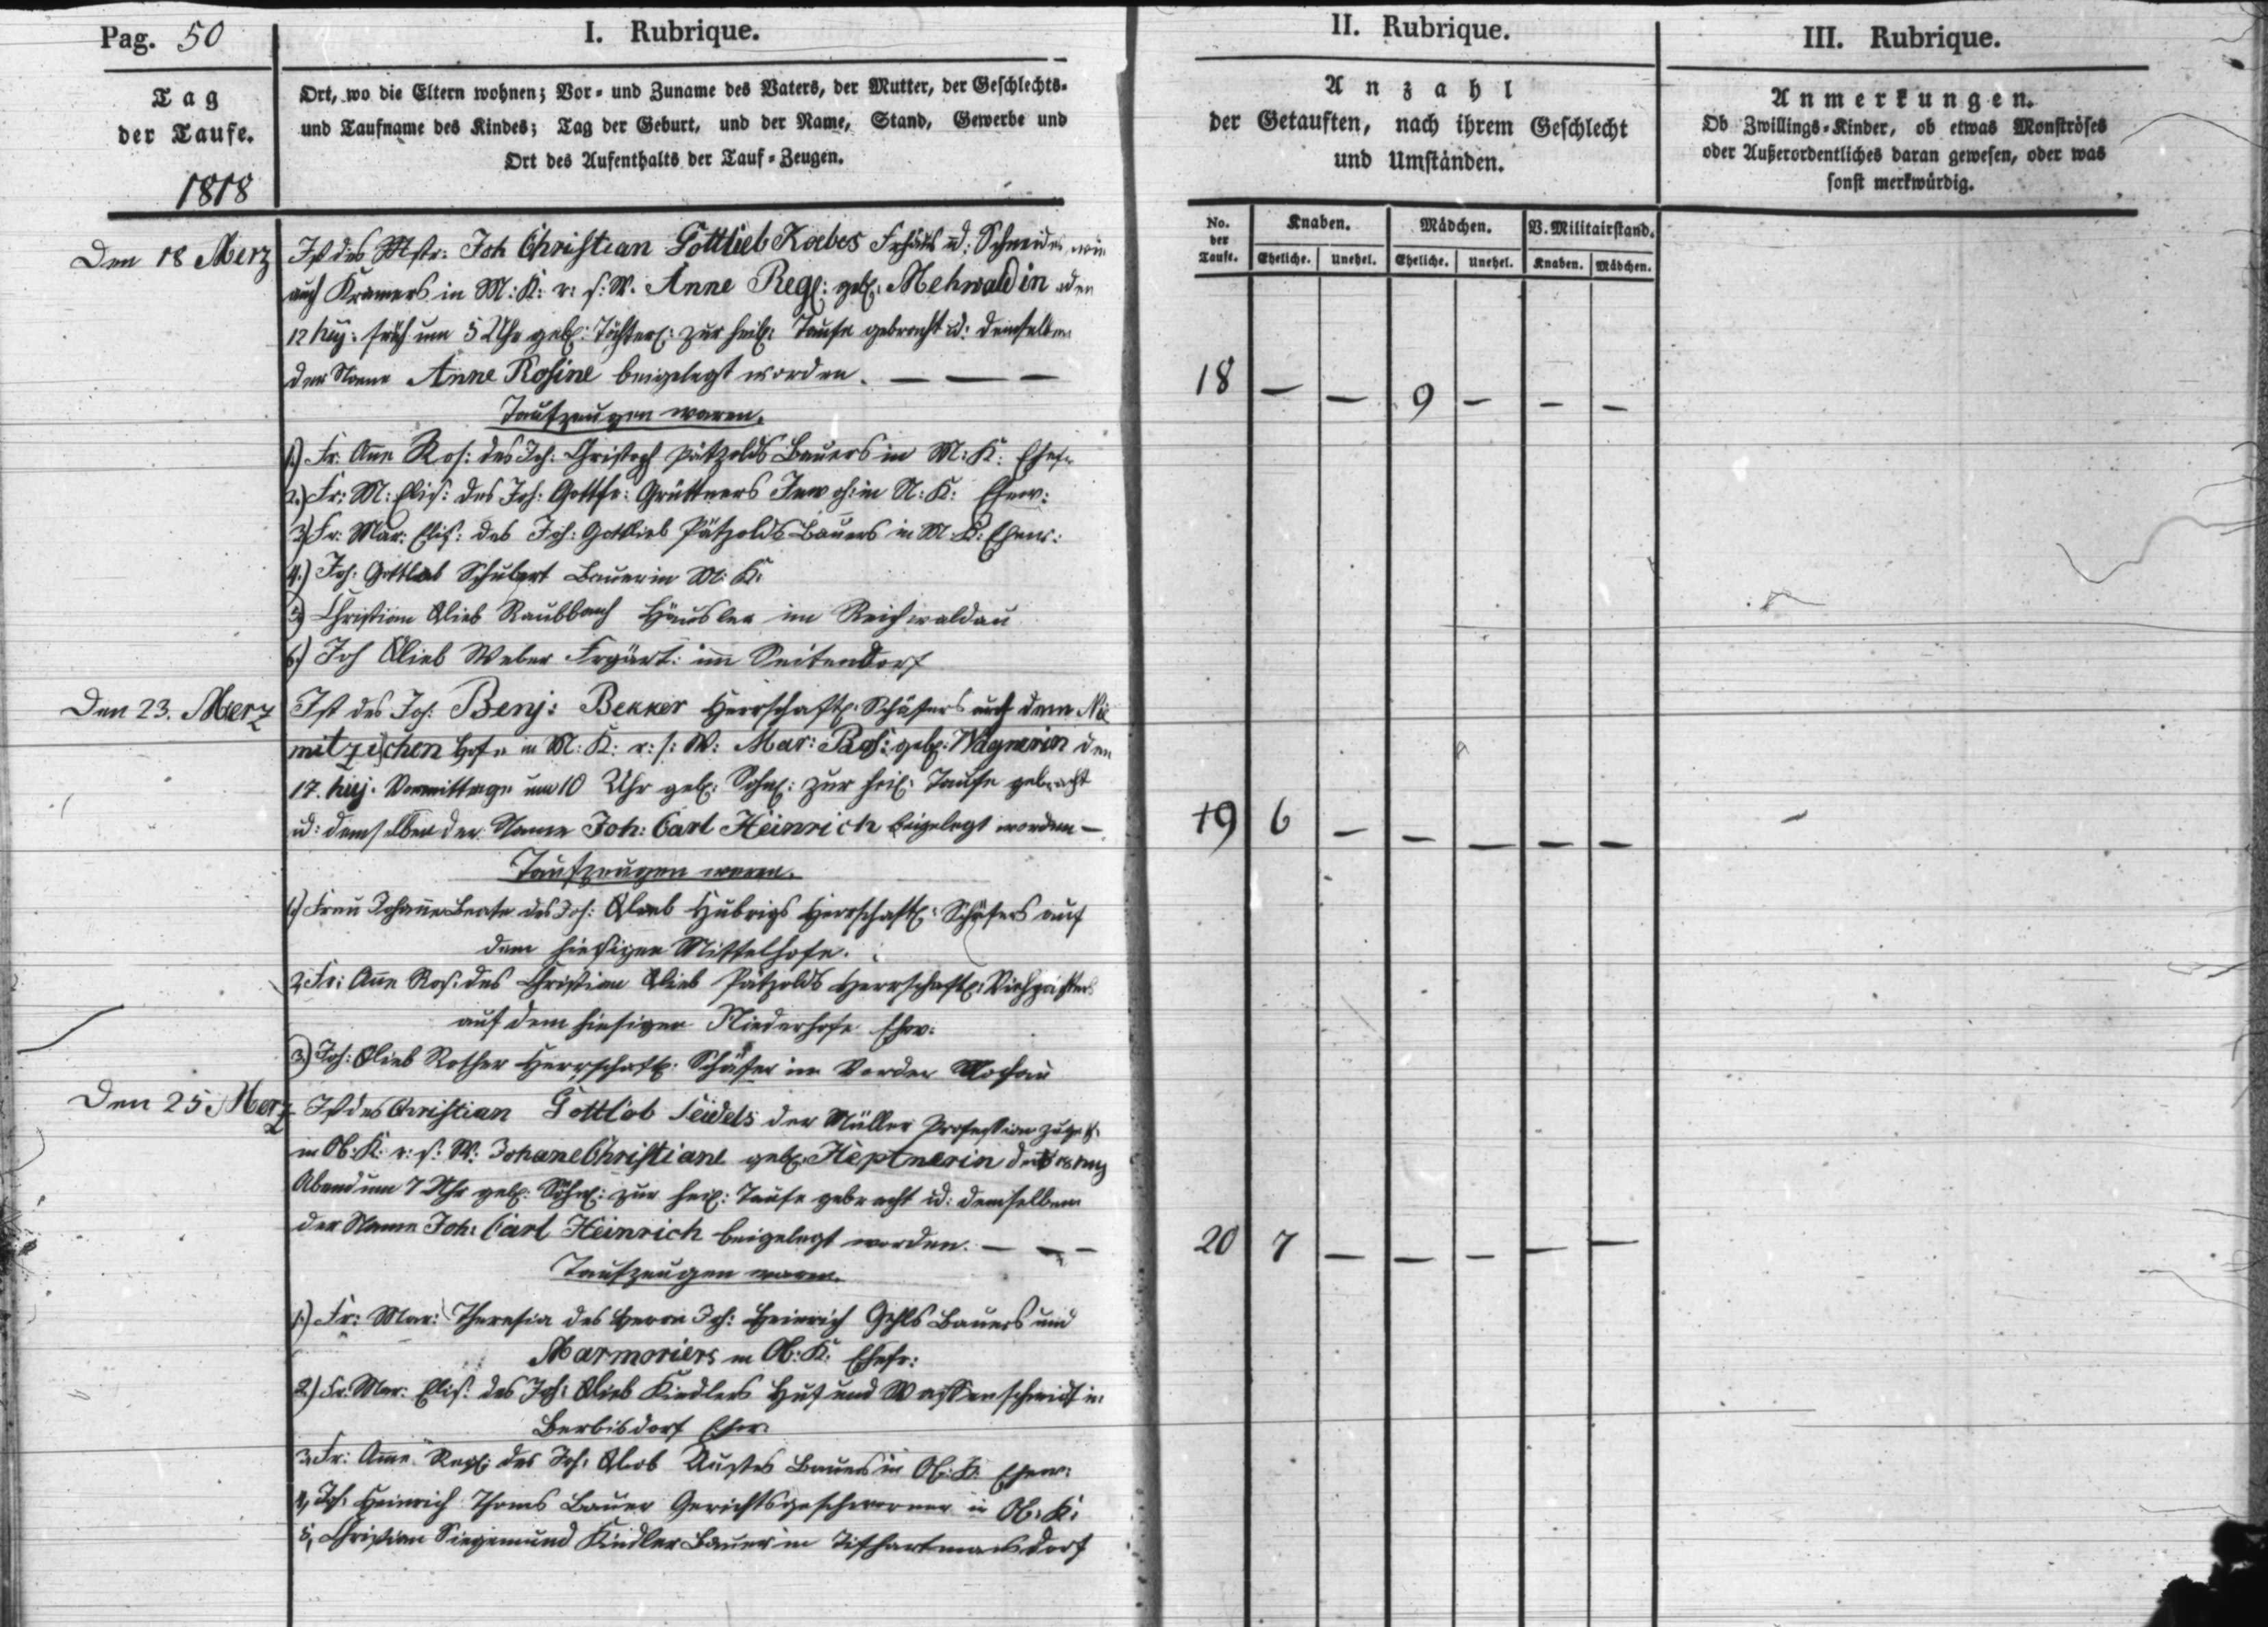 Pag. 50
I. Rubrique.
II. Rubrique.
III. Rubrique.
Tag
der Taufe.
1818
Ort, wo die Eltern wohnen; Vor- und Zuname des Vaters, der Mutter, der Geschlechts-
und Taufname des Kindes; Tag der Geburt, und der Name, Stand, Gewerbe und
Ort des Aufenthalts der Tauf-Zeugen.
Anzahl
der Getauften, nach ihrem Geschlecht
und Umständen.
Anmerkungen.
Ob Zwillings-Kinder, ob etwas Monströses
oder Außerordentliches daran gewesen, oder was
sonst merkwürdig.
No. der Taufe.
Knaben. Mädchen. V. Militairstand.
Eheliche. Unehel. Eheliche. Unehel. Knaben. Mädchen.
Den 18 Merz
Ist des Mstr: Joh Christian Gottlieb Koebes Frhäus ud: Schneider wie
auch Kramers in M: K: v: s: W. Anne Reg: geb: Mehwaldin den
12 huj: früh um 5 Uhr geb: Töchterl: zur heil: Taufe gebracht ud: demselben
der Name Anne Rosine beigelegt worden. — — —
18 — — 9 — — —
Taufzeugen waren.
1.) Fr. Anne Ros: des Joh: Christoph Pätzolds Bauers in M: K: Ehefr
2.) Fr: M: Elis: des Joh: Gottfr: Grüttners Inwoh: in N: K: Ehew:
3) Fr: Mar: Elis: des Joh: Gottlieb Pätzolds Bauers in M: K: Ehew:
4.) Joh: Gottlob Schubert Bauer in M: K:
5) Christian Glieb Raubbach Häusler in Reichwaldau
6.) Joh Glieb Weber Frgärt: in Seitendorf
Den 23. Merz
Ist des Joh: Benj: Bekker Herrschaftl: Schäfers auf dem Nie
mitzischen Hofe in M: K: v: s: W: Mar: Ros: geb: Wagnerin den
17. huj. Vormittage um 10 Uhr geb: Söhnl: zur heil: Taufe gebracht
ud: demselben der Name Joh: Carl Heinrich beigelegt worden —
19 6 — — — — —
Taufzeugen waren.
1.) Frau Johanne Beate des Joh: Glieb Hübrigs Herrschaftl: Schäfers auf
dem hiesigen Mittelhofe.
2, Fr: Anne Ros: des Christian Glieb Pätzolds Herrschaftl: Viehpächters
auf dem hiesigen Niederhofe Ehew:
3.) Joh: Glieb Rother Herrschaftl: Schäfer in Vorder Mochau
Den 25 Merz
Ist des Christian Gottlob Seidels der Müller Profession zuget:
in Ob: K: v: s: W: Johane Christiane geb: Heptnerin den 18 huj
Abend um 7 Uhr geb: Söhnl: zur heil: Taufe gebracht ud: demselben
der Name Joh: Carl Heinrich beigelegt worden. — — —
20 7 — — — — —
Taufzeugen waren.
1.) Fr: Mar: Theresia des Herrn Joh: Heinrich Bauers und
Marmoriers in Ob: K: Ehefr:
2.) Fr. Mar: Elis: des Joh: Glieb Kindlers Huf und Waffenschmidt in
Berbisdorf Ehew.
3. Fr: Anne Reg: des Joh: Glob Bauers in Ob: K: Ehew:
4, Joh: Heinrich Thoms Bauer Gerichtsgeschworner in Ob: K:
5, Christian Siegemund Kindler Bauer in Tiefhartmansdorf